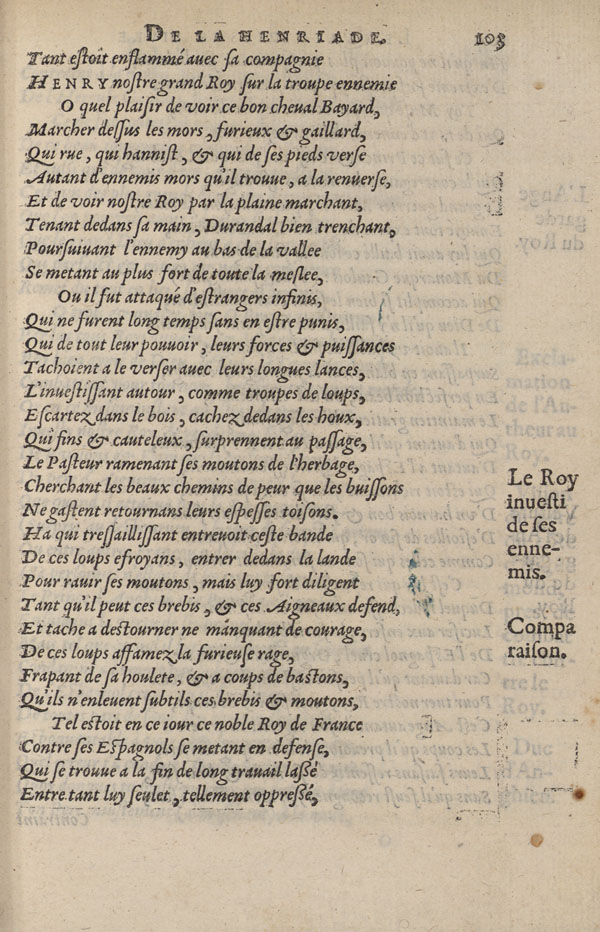 DE LA HENRIADE. 103
Tant eſtoit enflammé avec ſa compagnie
HENRY noſtre grand Roy ſur la troupe ennemie
O quel plaiſir de voir ce bon cheval Bayard,
Marcher deſſus les mors, furieux & gaillard,
Qui rue, qui hanniſt, & qui de ſes pieds verſe
Autant d'ennemis mors qu'il trouue, a la renuerſe,
Et de voir noſtre Roy par la plaine marchant,
Tenant dedans ſa main, Durandal bien trenchant,
Pourſuiuant l'ennemy au bas de la vallee
Se metant au plus fort de toute la meſlee,
Ou il fut attaqué d'eſtrangers infinis,
Qui ne furent long temps ſans en eſtre punis,
Qui de tout leur pouuoir, leurs forces & puiſſances
Tachoient a le verſer avec leurs longues lances,
L'inueſtiſſant autour, comme troupes de loups,
Eſcartez dans le bois, cachez dedans les houx,
Qui fins & cauteleux, ſurprennent au paſſage,
Le Paſteur ramenant ſes moutons de l'herbage,
Cherchant les beaux chemins de peur que les buiſſons
Ne gaſtent retournans leurs eſpeſſes toiſons.
Ha qui treſſailliſſant entreuoit ceſte bande
De ces loups efroyans, entrer dedans la lande
Pour rauir ſes moutons, mais luy fort diligent
Tant qu'il peut ces brebis, & ces Aigneaux defend,
Et tache a deſtourner ne mánquant de courage,
De ces loups affamez la furieuſe rage,
Frapant de ſa houlete, & a coups de baſtons,
Qu'ils n'enleuent ſubtils ces brebis & moutons,
Tel eſtoit en ce iour ce noble Roy de France
Contre ſes Eſpagnols ſe metant en defenſe,
Qui ſe trouue a la fin de long trauail laſſé
Entre tant luy ſeulet, tellement oppreſſé,
Le Roy
inueſti
de ſes
enne-
mis.
Compa
raiſon.